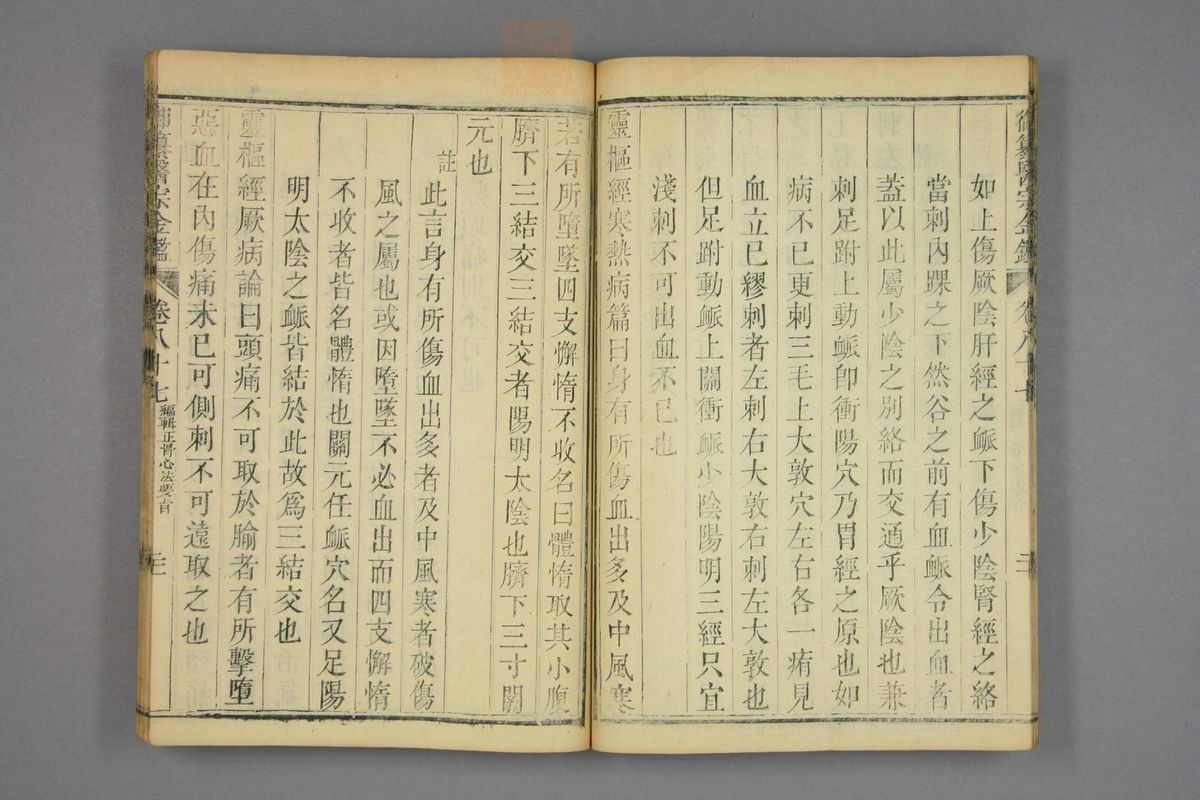 御纂醫宗金鑑 卷八十七
如上傷厥陰肝經之脈下傷少陰腎經之絡
當刺內踝之下然谷之前有血脈令出血者
蓋以此屬少陰之別絡而交通乎厥陰也兼
刺足跗上動脈卽衝陽穴乃胃經之原也如
病不已更刺三毛上大敦穴左右各一痏見
血立已繆刺者左刺右大敦右刺左大敦也
但足跗動脈上關衝脈少陰陽明三經只宜
淺刺不可出血不已也
靈樞經寒熱病篇曰身有所傷血出多及中風寒
若有所墮墜四支懈惰不收名曰體惰取其小腹
臍下三結交三結交者陽明太陰也臍下三寸關
元也
註 此言身有所傷血出多者及中風寒者破傷
風之屬也或因墮墜不必血出而四支懈惰
不收者皆名體惰也關元任脈穴名又足陽
明太陰之脈皆結於此故爲三結交也
靈樞經厥病論曰頭痛不可取於腧者有所擊墮
惡血在內傷痛未已可側刺不可遠取之也
御纂醫宗金鑑 卷八十七 編輯正骨心法要旨